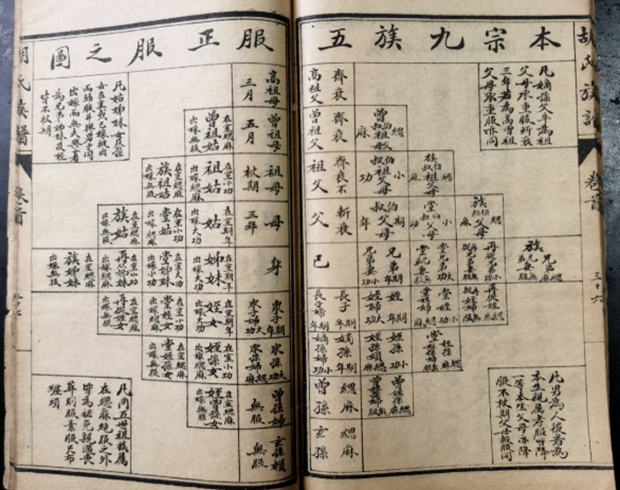 本宗九族五服正服之圖
胡氏族譜
卷首
三十六
凡嫡孫父卒為祖
父母承重服斬衰
三年若為高曾祖
父母承重服亦同
凡男為人後者為
本生親屬孝服皆降
一等本生父母亦降
服不杖期父母報服同
齊衰
高祖父
高祖母
三月
曾伯叔祖父母
緦麻
齊衰
曾祖父
曾祖母
五月
曾祖姑
在室緦麻
出嫁無服
族伯叔祖父母
緦麻
伯叔祖父母
小功
齊衰不
祖父
祖母
杖期
祖姑
在室小功
出嫁緦麻
族祖姑
在室緦麻
出嫁無服
族伯叔父母
緦麻
堂伯叔父母
小功
伯叔父母
期年
斬衰
父
母
三年
姑
在室期年
出嫁大功
堂姑
在室小功
出嫁緦麻
族姑
在室緦麻
出嫁無服
族兄弟
緦麻
堂兄弟
大功
兄弟
期年
兄弟妻
小功
己
身
姊妹
在室期年
出嫁大功
堂姊妹
再從姊妹
族姊妹
在室緦麻
出嫁無服
再從姪
堂姪
小功
姪
期年
姪婦
大功
長子
期年
長子婦
期年
眾子
期年
眾子婦
大功
姪女
在室期年
出嫁大功
堂姪女
再從姪女
在室緦麻
出嫁無服
堂姪孫
緦麻
姪孫
小功
姪孫婦
緦麻
嫡孫
期年
嫡孫婦
小功
眾孫
大功
眾孫婦
緦麻
姪孫女
在室小功
出嫁緦麻
堂姪孫女
在室緦麻
出嫁無服
曾姪孫
緦麻
緦麻
曾孫
曾孫婦
無服
緦麻
玄孫
玄孫婦
無服
凡姑姊妹女及孫
女在室或已嫁被出
而歸服並與男子同
出嫁而無夫與子者
為兄弟姊妹及姪
皆不杖期
凡同五世祖族屬
在緦麻絕服之外
皆為袒免親遇喪
葬則服素服尺布
纏頭
胡氏族譜
卷首